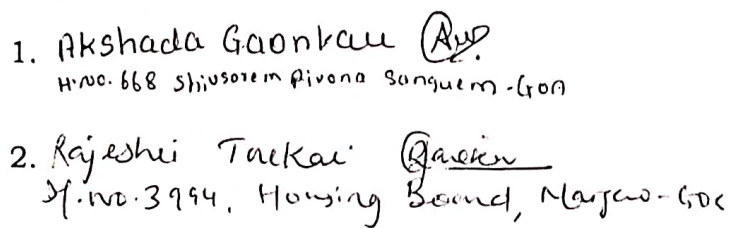 1. Akshada Gaonkar
H.NO. 668 Shivsorem Rivona Sanguem-GOA
2. Rajeshri Tarkar
H.no. 3994, Housing Board, Margao-Goa